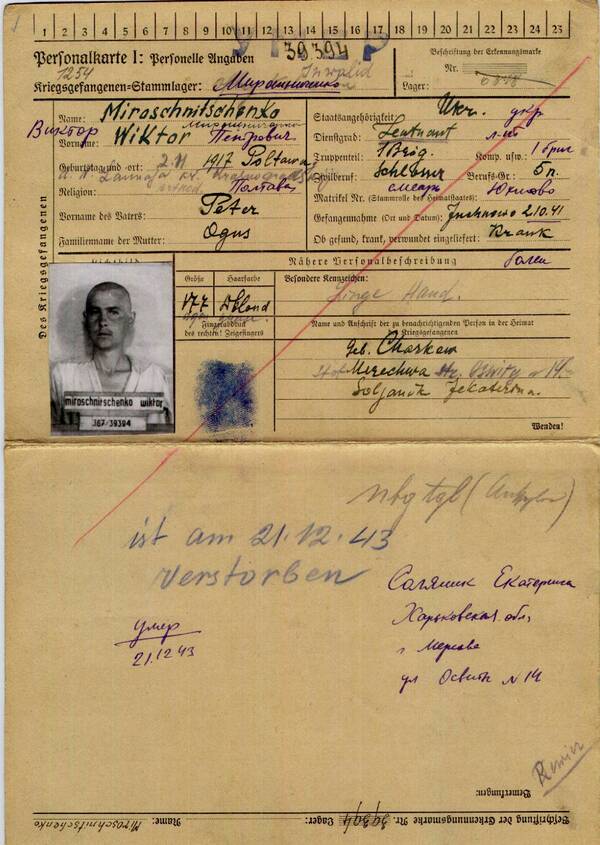 1 2 3 4 5 6 7 8 9 10 11 12 13 14 15 16 17 18 19 20 21 22 23 24 25
УМЕР
39394
Personalkarte I: Personelle Angaben
1254 Invalid
Kriegsgefangenen-Stammlager: Мирошниченко
Beschriftung der Erkennungsmarke
Nr.
Lager:
Des Kriegsgefangenen
Name: Miroschnitschenko
Мирошниченко
Виктор
Vorname: Wiktor Петрович
Geburtstag und -ort: 2. VI 1917 Poltawa
Полтава
Religion:
Vorname des Vaters: Peter
Familienname der Mutter: Ogus
Staatsangehörigkeit: Ukr. укр
Dienstgrad: Leutnant л-нт
Truppenteil: 1 Brig. Komp. usw.: 1 бриг
Zivilberuf: Schlosser Berufs-Gr.: 5 п.
слесарь Юхново
Matrikel Nr. (Stammrolle des Heimatstaates)
Gefangennahme (Ort und Datum): Juchnowo 2.10.41
Ob gesund, krank, verwundet eingeliefert: Krank
Lichtbild
Nähere Personalbeschreibung
Größe Haarfarbe
177 d.blond
Fingerabdruck
des rechten! Zeigefingers
Besondere Kennzeichen:
Hand.
Name und Anschrift der zu benachrichtigenden Person in der Heimat
des Kriegsgefangenen
Geb. Charkow
Merechwa Str. Oswity N 14.
Soljanik Jekaterina.
Wenden!
miroschnitschenko wiktor
367/39394
nbgtgl
ist am 21.12.43
verstorben
умер
21.12.43
Соляник Екатерина
Харьковская обл,
г Мерефа
ул Освиты N 14
Revier
Bemerkungen:
Beschriftung der Erkennungsmarke Nr. 39394 Lager: Name: Miroschnitschenko